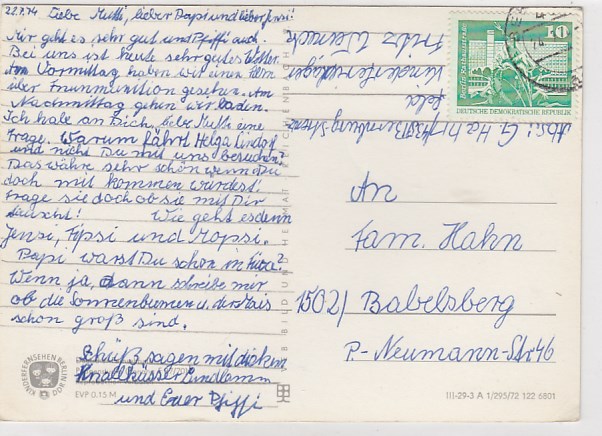 22.7.74 Liebe Mutti, lieber Papi und lieber Jensi!
Mir geht es sehr gut und Pfiffi auch.
Bei uns ist heute sehr gutes Wetter.
Am Vormittag haben wir einen Film
über Munition gesehen. Am
Nachmittag gehen wir baden.
Ich habe an Dich, liebe Mutti eine
Frage. Warum fährt Helga
und nicht Du mit uns besuchen?
Das wäre sehr schön wenn Du
doch mit kommen würdest!
Frage sie doch ob sie mit Dir
tauscht! Wie geht es denn
Jensi, und Mopsi.
Papi warst Du schon in
Wenn ja, dann schreibe mir
ob die Sonnenblumen u. der Mais
schon groß sind.
Tschüß sagen mit dicken
Knallküssen
und Euer Pfiffi
Abs: G. Hahn
Kinderferienlager
Fritz
10
DEUTSCHE DEMOKRATISCHE REPUBLIK
An
Fam. Hahn
1502/ Babelsberg
P.-Neumann-Str 46
KINDERFERNSEHEN BERLIN
EVP 0,15 M
III-29-3 A 1/295/72 122 6801